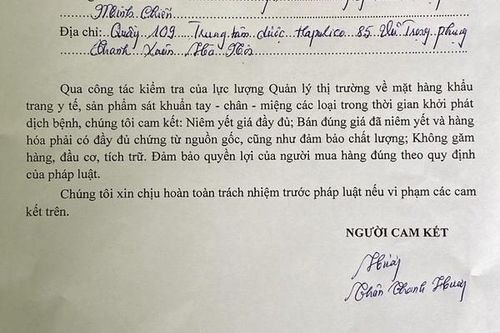 Minh Chiến
Địa chỉ: Quầy 109 Trung tâm dược Hapulico 85 Vũ Trọng Phụng
Thanh Xuân Hà Nội
Qua công tác kiểm tra của lực lượng Quản lý thị trường về mặt hàng khẩu
trang y tế, sản phẩm sát khuẩn tay - chân - miệng các loại trong thời gian khởi phát
dịch bệnh, chúng tôi cam kết: Niêm yết giá đầy đủ; Bán đúng giá đã niêm yết và hàng
hóa phải có đầy đủ chứng từ nguồn gốc, cũng như đảm bảo chất lượng; Không găm
hàng, đầu cơ, tích trữ. Đảm bảo quyền lợi của người mua hàng đúng theo quy định
của pháp luật.
Chúng tôi xin chịu hoàn toàn trách nhiệm trước pháp luật nếu vi phạm các cam
kết trên.
NGƯỜI CAM KẾT
Thanh